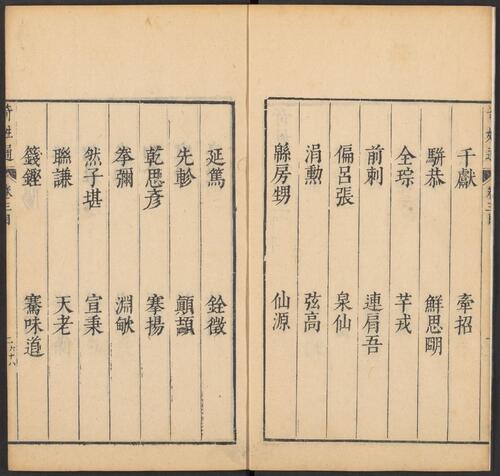 千獻 牽招
駢恭 鮮思明
全琮 芊戎
前刺 連肩吾
偏呂張 泉仙
涓勲 弦高
縣房甥 仙源
延篤 銓徵
先軫 顛頡
乾思彥 搴揚
拳彌 淵敏
然子堪 宣秉
聮謙 天老
籛鏗 騫味道
奇姓通 卷三目